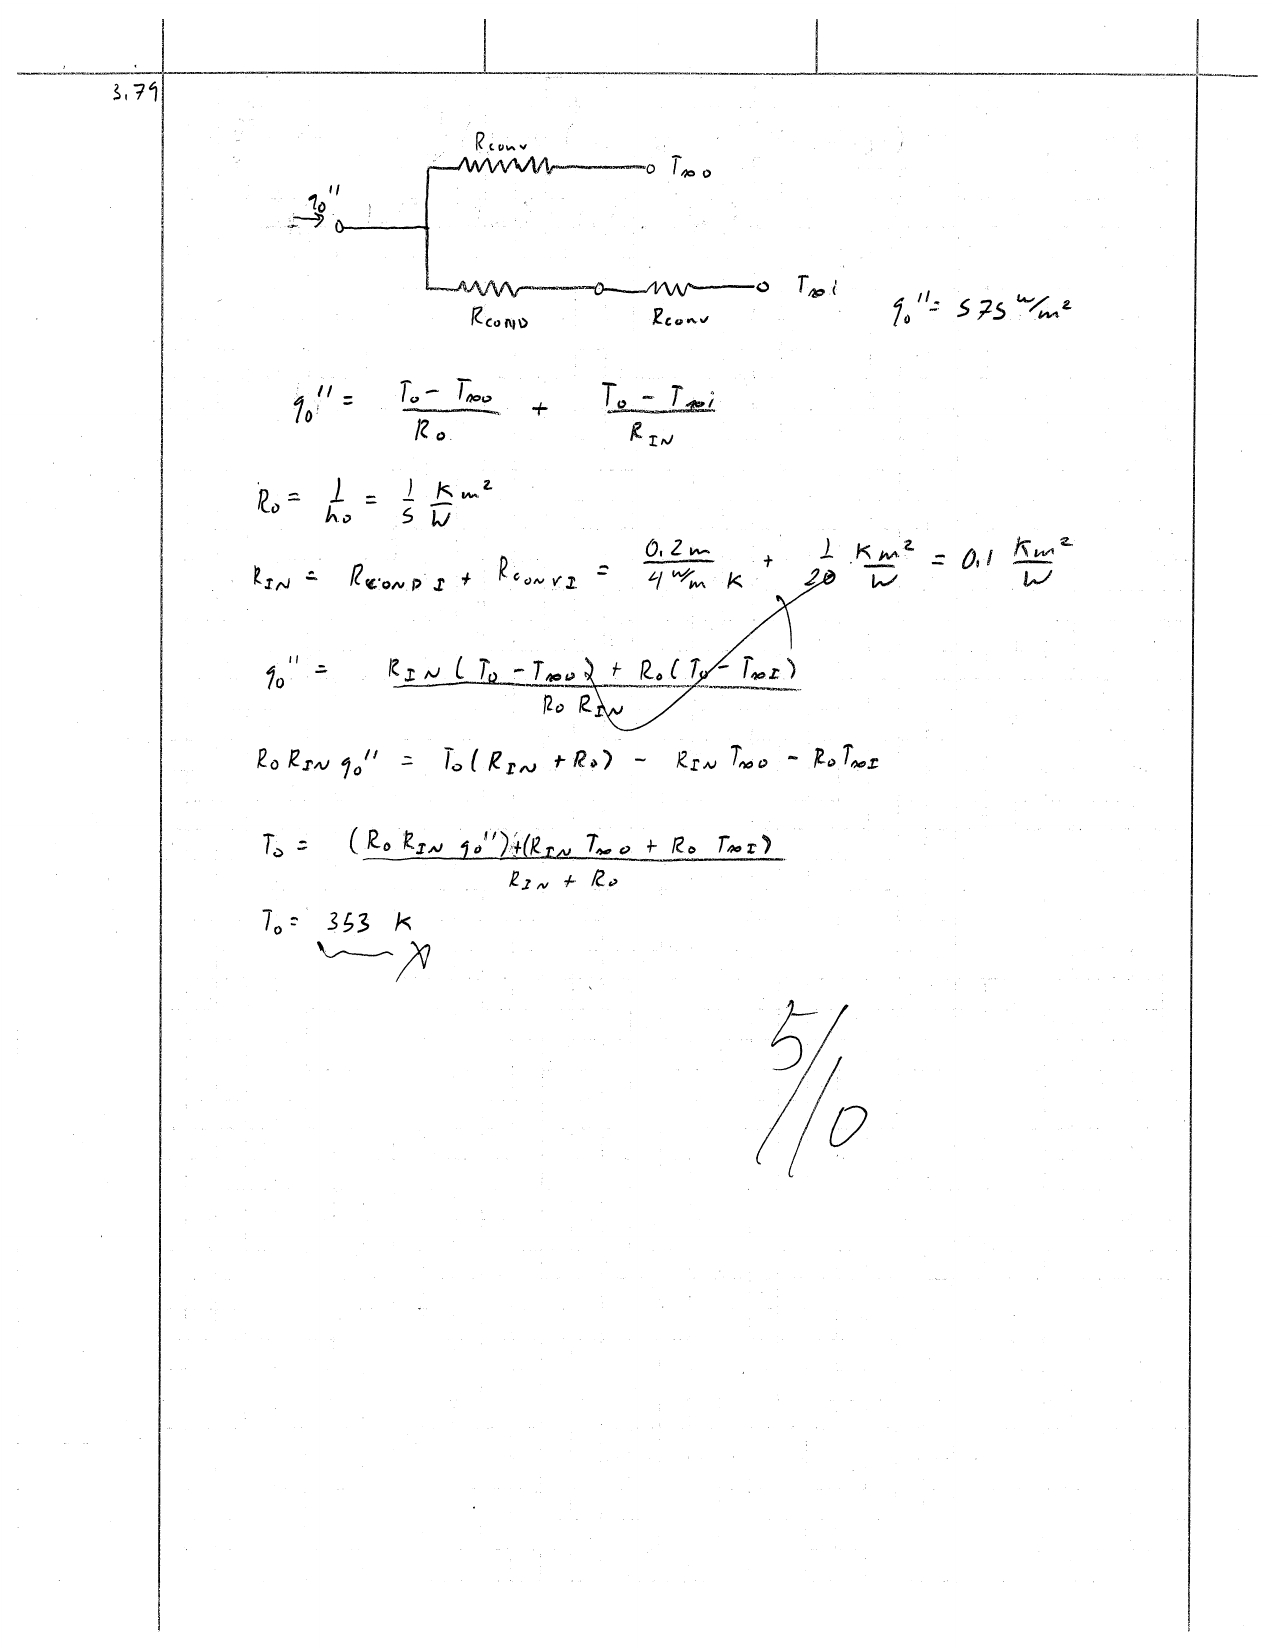 3.79
Rconv
T∞o
q₀"
T∞i
RCOND Rconv
q₀" = 575 W/m²
q₀" = (T₀ - T∞o)/R₀ + (T₀ - T∞i)/RIN
R₀ = 1/h₀ = 1/5 K m²/W
RIN = RCOND I + RCONV I = 0.2 m/4 W/m K + 1/20 K m²/W = 0.1 K m²/W
q₀" = (RIN (T₀ - T∞o) + R₀ (T₀ - T∞I))/R₀ RIN
R₀ RIN q₀" = T₀ (RIN + R₀) - RIN T∞o - R₀ T∞I
T₀ = ((R₀ RIN q₀") + (RIN T∞o + R₀ T∞I))/RIN + R₀
T₀ = 353 K
5/10